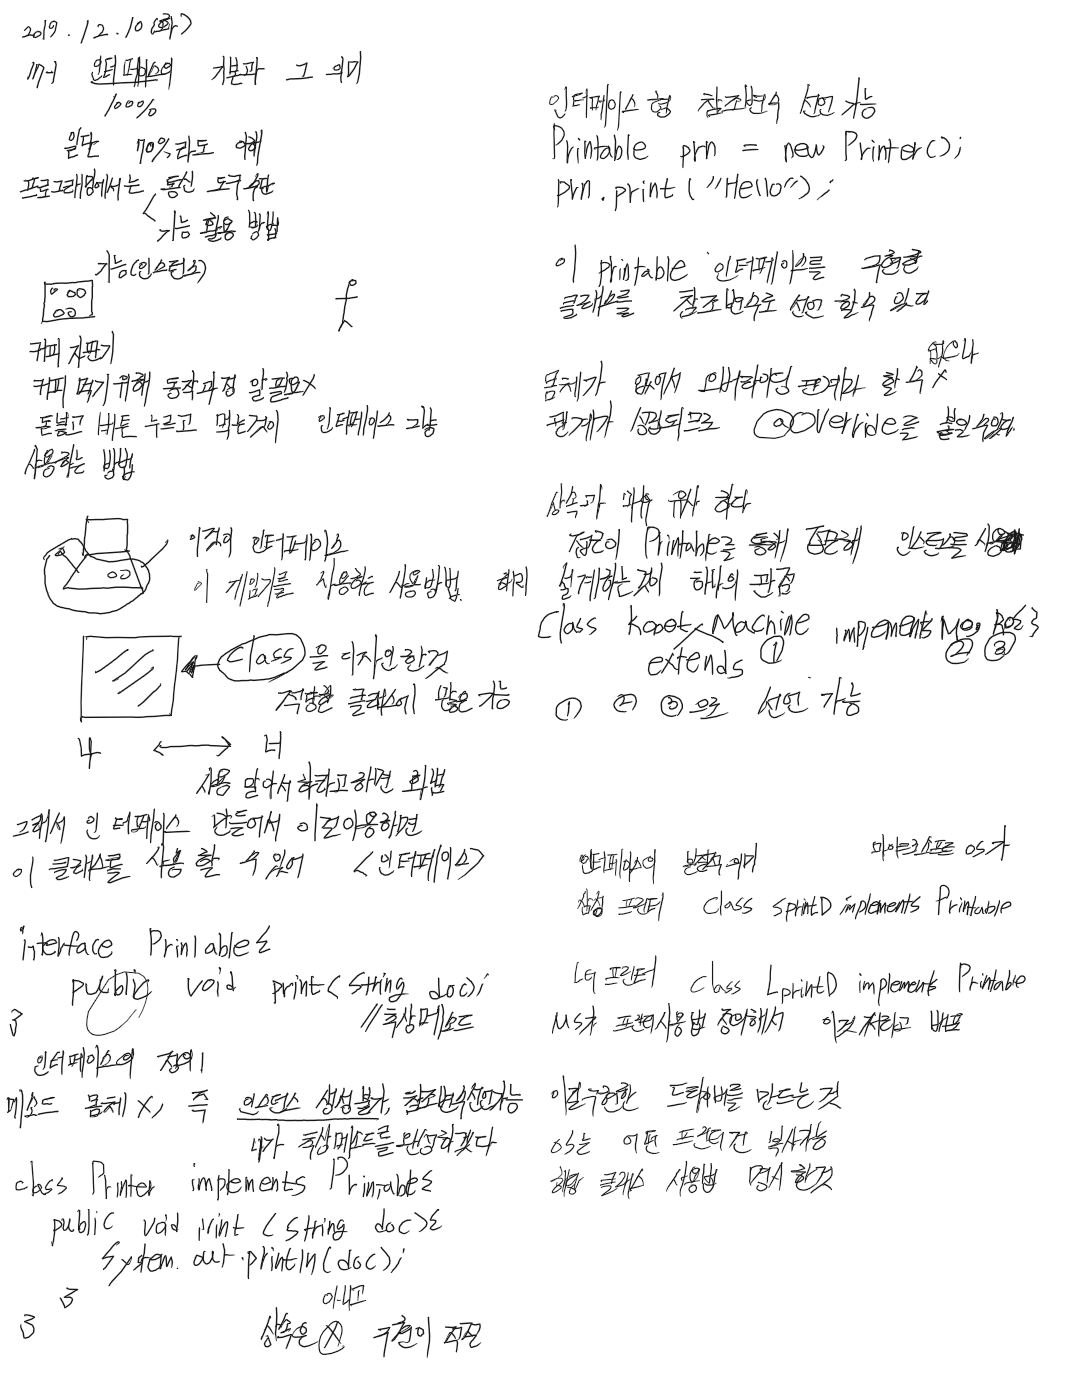 2019.12.10(화)
17-1 인터페이스의 기본과 그 의미
100%
일단 70%라도 이해
프로그래밍에서는 통신 도구 수단
기능 활용 방법
기능(인스턴스)
커피 자판기
커피 먹기위해 동작과정 알 필요x
돈넣고 버튼 누르고 먹는것이 인터페이스 그냥
사용하는 방법
이것이 인터페이스
이 게임기를 사용하는 사용방법
class을 디자인한것
적당한 클래스에 많은 기능
나 ↔ 너
사용 알아서하라고하면
그래서 인터페이스 만들어서 이용하면
이 클래스를 사용 할 수 있어 <인터페이스>
interface Printable{
public void print(String doc);
//추상메소드
}
인터페이스의 정의!
메소드 몸체 x, 즉 인스턴스 생성불가, 참조변수선언가능
내가 추상메소드를 완성하겠다
class Printer implements Printable{
public void print (String doc){
System.out.println(doc);
}
}
아니고
상속은 x 구현이
인터페이스 형 참조변수 선언 가능
Printable prn = new Printer();
prn.print("Hello");
이 printable 인터페이스를 구현한
클래스를 참조변수로 선언 할수 있다
없으나
몸체가 없어서 오버라이딩 관계라 할 수 x
관계가 성립되므로 @Override를 붙일 수있다
상속과 매우 유사 하다
접근이 Printable를 통해 접근해 인스턴스를 사용
설계하는것이 하나의 관점
Class Robot Machine implements Mo, Ro{}
extends ① ② ③
① ② ③으로 선언 가능
인터페이스의 본질적 의미
마이크로소프트 OS가
삼성 프린터 class SprintD implements Printable
LG 프린터 class LprintD implements Printable
MS가 프린터사용법 정의해서 이것 처라고 배포
이걸구현한 드라이버를 만드는 것
OS는 어떤 프린터건 복사가능
해당 클래스 사용법 명시 한것